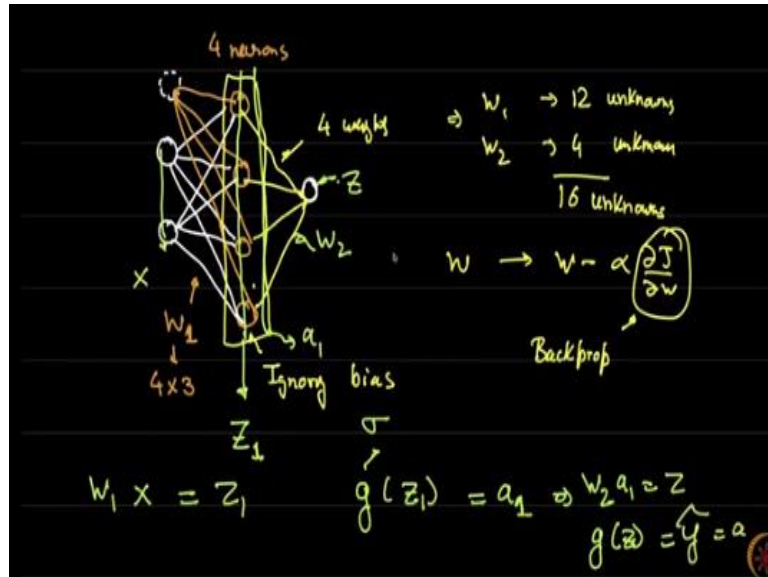 4 neurons
4 weights
⇒ W₁ → 12 unknowns
W₂ → 4 unknown
16 unknowns
Z
W₂
X
W₁
4x3
a₁
Ignoring bias
Z₁
W → W - α ∂J/∂w
Backprop
σ
W₁ X = Z₁
g(Z₁) = a₁ ⇒ W₂ a₁ = Z
g(z) = ŷ = a